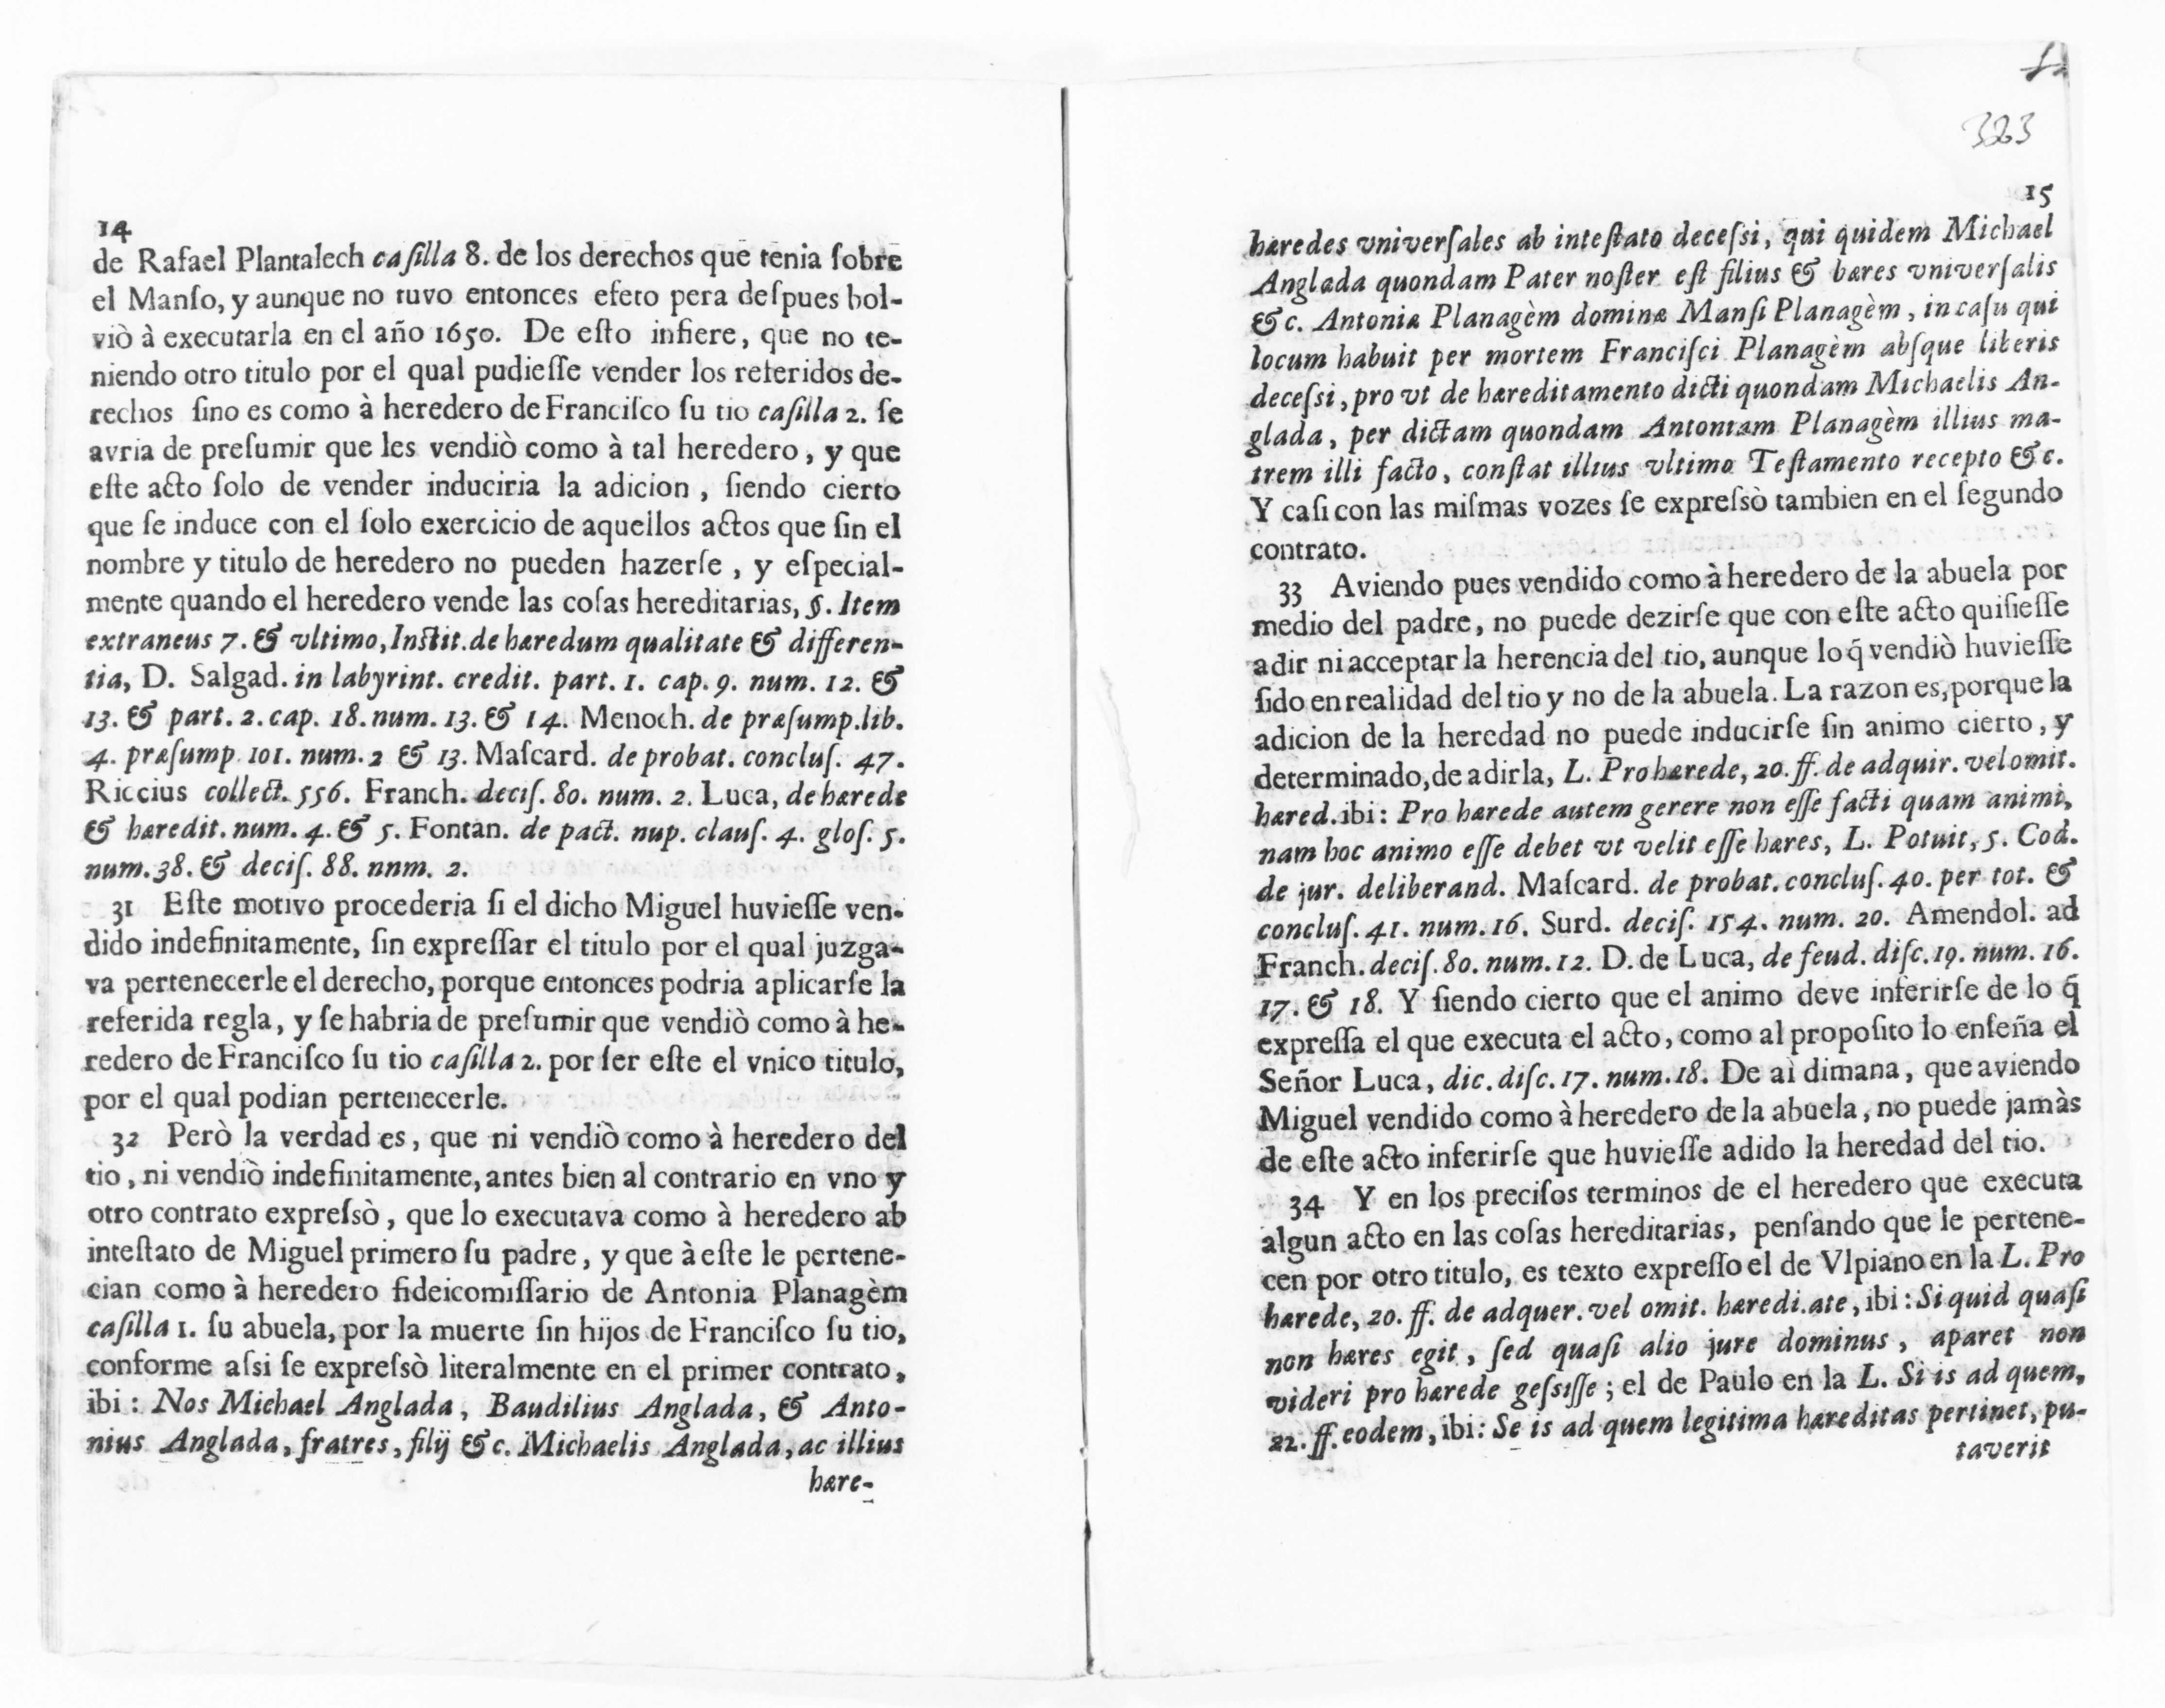 14
de Rafael Plantalech caſilla 8. de los derechos que tenia ſobre
el Manſo, y aunque no tuvo entonces efeto pera deſpues bol-
viò à executarla en el año 1650. De eſto infiere, que no te-
niendo otro titulo por el qual pudieſſe vender los referidos de-
rechos ſino es como à heredero de Franciſco ſu tio caſilla 2. ſe
avria de preſumir que les vendiò como à tal heredero, y que
eſte acto ſolo de vender induciria la adicion, ſiendo cierto
que ſe induce con el ſolo exercicio de aquellos actos que ſin el
nombre y titulo de heredero no pueden hazerſe, y eſpecial-
mente quando el heredero vende las coſas hereditarias, §. Item
extraneus 7. & vltimo, Inſtit. de hæredum qualitate & differen-
tia, D. Salgad. in labyrint. credit. part. 1. cap. 9. num. 12. &
13. & part. 2. cap. 18. num. 13. & 14. Menoch. de præſump. lib.
4. præſump. 101. num. 2 & 13. Maſcard. de probat. concluſ. 47.
Riccius collect. 556. Franch. deciſ. 80. num. 2. Luca, de hærede
& hæredit. num. 4. & 5. Fontan. de pact. nup. clauſ. 4. gloſ. 5.
num. 38. & deciſ. 88. nnm. 2.
31 Eſte motivo procederia ſi el dicho Miguel huvieſſe ven-
dido indefinitamente, ſin expreſſar el titulo por el qual juzga-
va pertenecerle el derecho, porque entonces podria aplicarſe la
referida regla, y ſe habria de preſumir que vendiò como à he-
redero de Franciſco ſu tio caſilla 2. por ſer eſte el vnico titulo,
por el qual podian pertenecerle.
32 Però la verdad es, que ni vendiò como à heredero del
tio, ni vendiò indefinitamente, antes bien al contrario en vno y
otro contrato expreſsò, que lo executava como à heredero ab
inteſtato de Miguel primero ſu padre, y que à eſte le pertene-
cian como à heredero fideicomiſſario de Antonia Planagèm
caſilla 1. ſu abuela, por la muerte ſin hijos de Franciſco ſu tio,
conforme aſsi ſe expreſsò literalmente en el primer contrato,
ibi: Nos Michael Anglada, Baudilius Anglada, & Anto-
nius Anglada, fratres, filij &c. Michaelis Anglada, ac illius
hære-
323
15
hæredes vniverſales ab inteſtato deceſsi, qui quidem Michael
Anglada quondam Pater noſter eſt filius & hæres vniverſalis
&c. Antoniæ Planagèm dominæ Manſi Planagèm, in caſu qui
locum habuit per mortem Franciſci Planagèm abſque liberis
deceſsi, pro vt de hæreditamento dicti quondam Michaelis An-
glada, per dictam quondam Antoniam Planagèm illius ma-
trem illi facto, conſtat illius vltimo Teſtamento recepto &c.
Y caſi con las miſmas vozes ſe expreſsò tambien en el ſegundo
contrato.
33 Aviendo pues vendido como à heredero de la abuela por
medio del padre, no puede dezirſe que con eſte acto quiſieſſe
adir ni acceptar la herencia del tio, aunque lo q̃ vendiò huvieſſe
ſido en realidad del tio y no de la abuela. La razon es, porque la
adicion de la heredad no puede inducirſe ſin animo cierto, y
determinado, de adirla, L. Pro hærede, 20. ff. de adquir. vel omit.
hæred. ibi: Pro hærede autem gerere non eſſe facti quam animi,
nam hoc animo eſſe debet vt velit eſſe hæres, L. Potuit, 5. Cod.
de jur. deliberand. Maſcard. de probat. concluſ. 40. per tot. &
concluſ. 41. num. 16. Surd. deciſ. 154. num. 20. Amendol. ad
Franch. deciſ. 80. num. 12. D. de Luca, de feud. diſc. 19. num. 16.
17. & 18. Y ſiendo cierto que el animo deve inferirſe de lo q̃
expreſſa el que executa el acto, como al propoſito lo enſeña el
Señor Luca, dic. diſc. 17. num. 18. De aì dimana, que aviendo
Miguel vendido como à heredero de la abuela, no puede jamàs
de eſte acto inferirſe que huvieſſe adido la heredad del tio.
34 Y en los preciſos terminos de el heredero que executa
algun acto en las coſas hereditarias, penſando que le pertene-
cen por otro titulo, es texto expreſſo el de Vlpiano en la L. Pro
hærede, 20. ff. de adquer. vel omit. hæredi.ate, ibi: Si quid quaſi
non hæres egit, ſed quaſi alio jure dominus, aparet non
videri pro hærede geſsiſſe; el de Paulo en la L. Si is ad quem,
22. ff. eodem, ibi: Se is ad quem legitima hæreditas pertinet, pu-
taverit